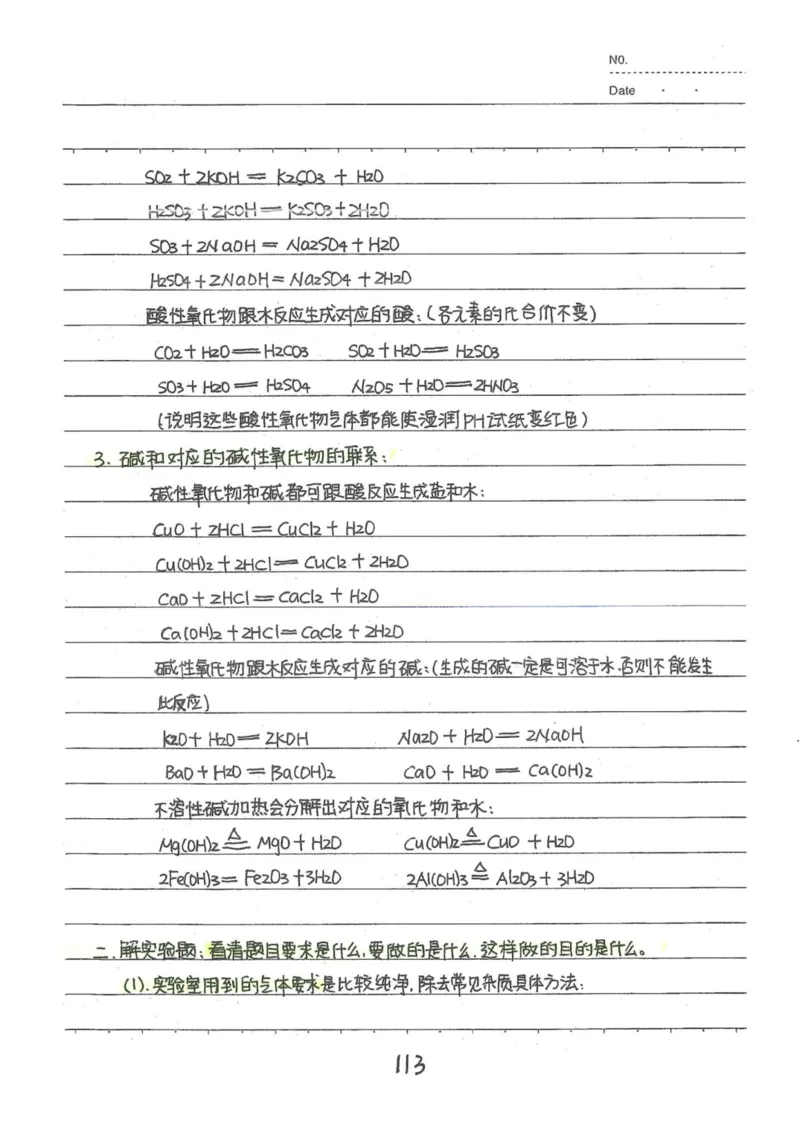 NO.
Date · ·
SO2 + 2KOH = K2CO3 + H2O
H2SO3 + 2KOH = K2SO3 + 2H2O
SO3 + 2NaOH = Na2SO4 + H2O
H2SO4 + 2NaOH = Na2SO4 + 2H2O
酸性氧化物跟水反应生成对应的酸:(各元素的化合价不变)
CO2 + H2O = H2CO3 SO2 + H2O = H2SO3
SO3 + H2O = H2SO4 N2O5 + H2O = 2HNO3
(说明这些酸性氧化物气体都能使湿润PH试纸变红色)
3. 碱和对应的碱性氧化物的联系:
碱性氧化物和碱都可跟酸反应生成盐和水:
CuO + 2HCl = CuCl2 + H2O
Cu(OH)2 + 2HCl = CuCl2 + 2H2O
CaO + 2HCl = CaCl2 + H2O
Ca(OH)2 + 2HCl = CaCl2 + 2H2O
碱性氧化物跟水反应生成对应的碱:(生成的碱一定是可溶于水.否则不能发生
此反应)
K2O + H2O = 2KOH Na2O + H2O = 2NaOH
BaO + H2O = Ba(OH)2 CaO + H2O = Ca(OH)2
不溶性碱加热会分解出对应的氧化物和水:
Mg(OH)2 ≜ MgO + H2O Cu(OH)2 ≜ CuO + H2O
2Fe(OH)3 = Fe2O3 + 3H2O 2Al(OH)3 ≜ Al2O3 + 3H2O
二.解实验题:看清题目要求是什么,要做的是什么,这样做的目的是什么。
(1).实验室用到的气体要求是比较纯净,除去常见杂质具体方法:
113